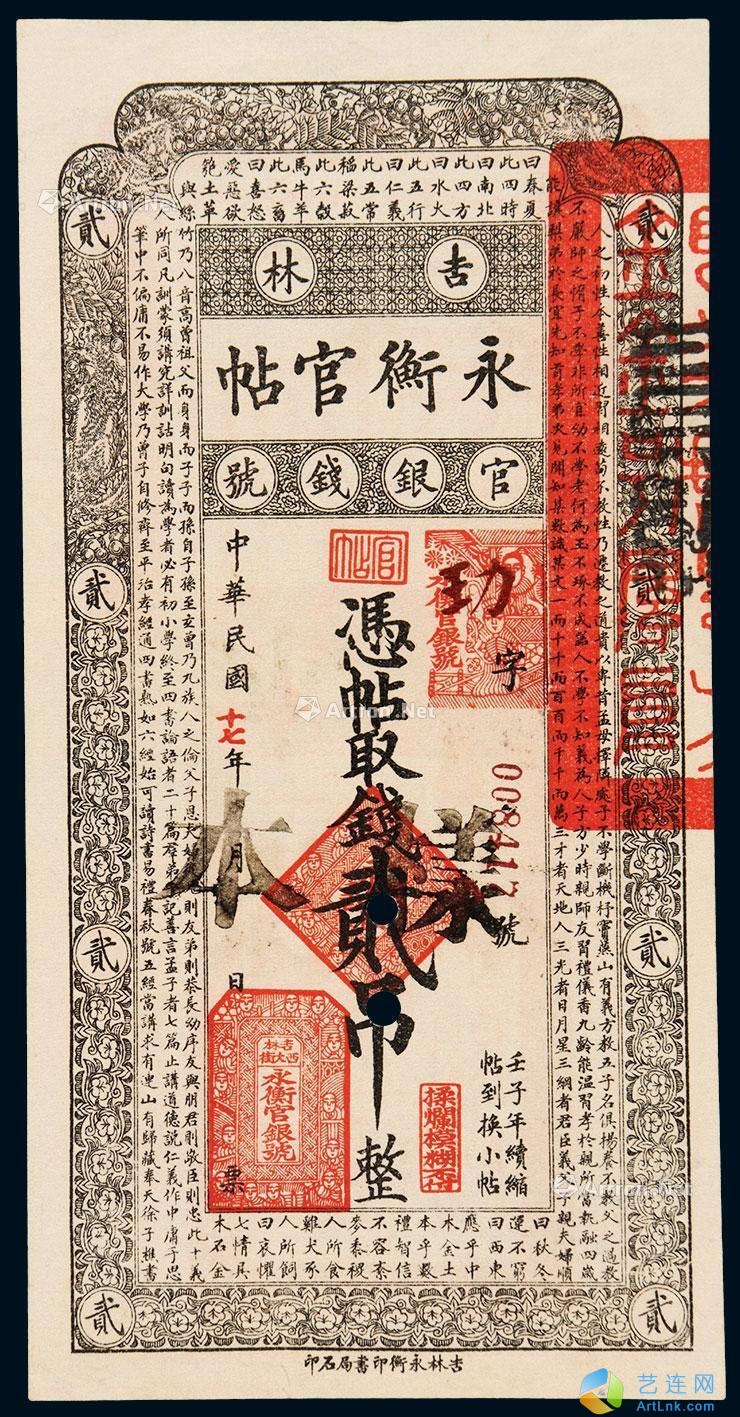 貳
貳
吉林
永衡官帖
官銀錢號
人之初性本善性相近習相遠苟不教性乃遷教之道貴以專昔孟母擇鄰處子不學斷機杼竇燕山有義方教五子名俱揚養不教父之過教
不嚴師之惰子不學非所宜幼不學老何為玉不琢不成器人不學不知義為人子方少時親師友習禮儀香九齡能溫習孝於親所當執融四歲
能讓梨弟於長宜先知首孝弟次見聞知某數識某文一而十十而百百而千千而萬三才者天地人三光者日月星三綱者君臣義父子親夫婦順
曰春夏
此四時
曰南北
此四方
曰水火
此五行
曰仁義
此五常
稻粱菽
此六穀
馬牛羊
此六畜
曰喜怒
愛惡欲
匏土革
曰秋冬
運不窮
曰西東
應乎中
木金土
本乎數
禮智信
不容紊
麥黍稷
人所食
雞犬豕
人所飼
曰哀懼
七情具
木石金
與絲竹乃八音高曾祖父而身身而子子而孫自子孫至玄曾乃九族人之倫父子恩夫婦則友弟則恭長幼序友與朋君則敬臣則忠此十義
人所同凡訓蒙須講究詳訓詁明句讀為學者必有初小學終至四書論語者二十篇群弟子記善言孟子者七篇止講道德說仁義作中庸子思
筆中不偏庸不易作大學乃曾子自修齊至平治孝經通四書熟如六經始可讀詩書易禮春秋號五經當講求有連山有歸藏奉天徐子椎書
功字
008417號
壬子年續縮
帖到換小帖
官帖
憑帖取錢貳吊整
中華民國十七年月日票
永衡官銀號
吉林
西大街
永衡官銀號
揉爛模糊不付
本
貳
貳
貳
貳
貳
貳
吉林永衡印書局石印
Artron.Net
艺连网
ArtLnk.com